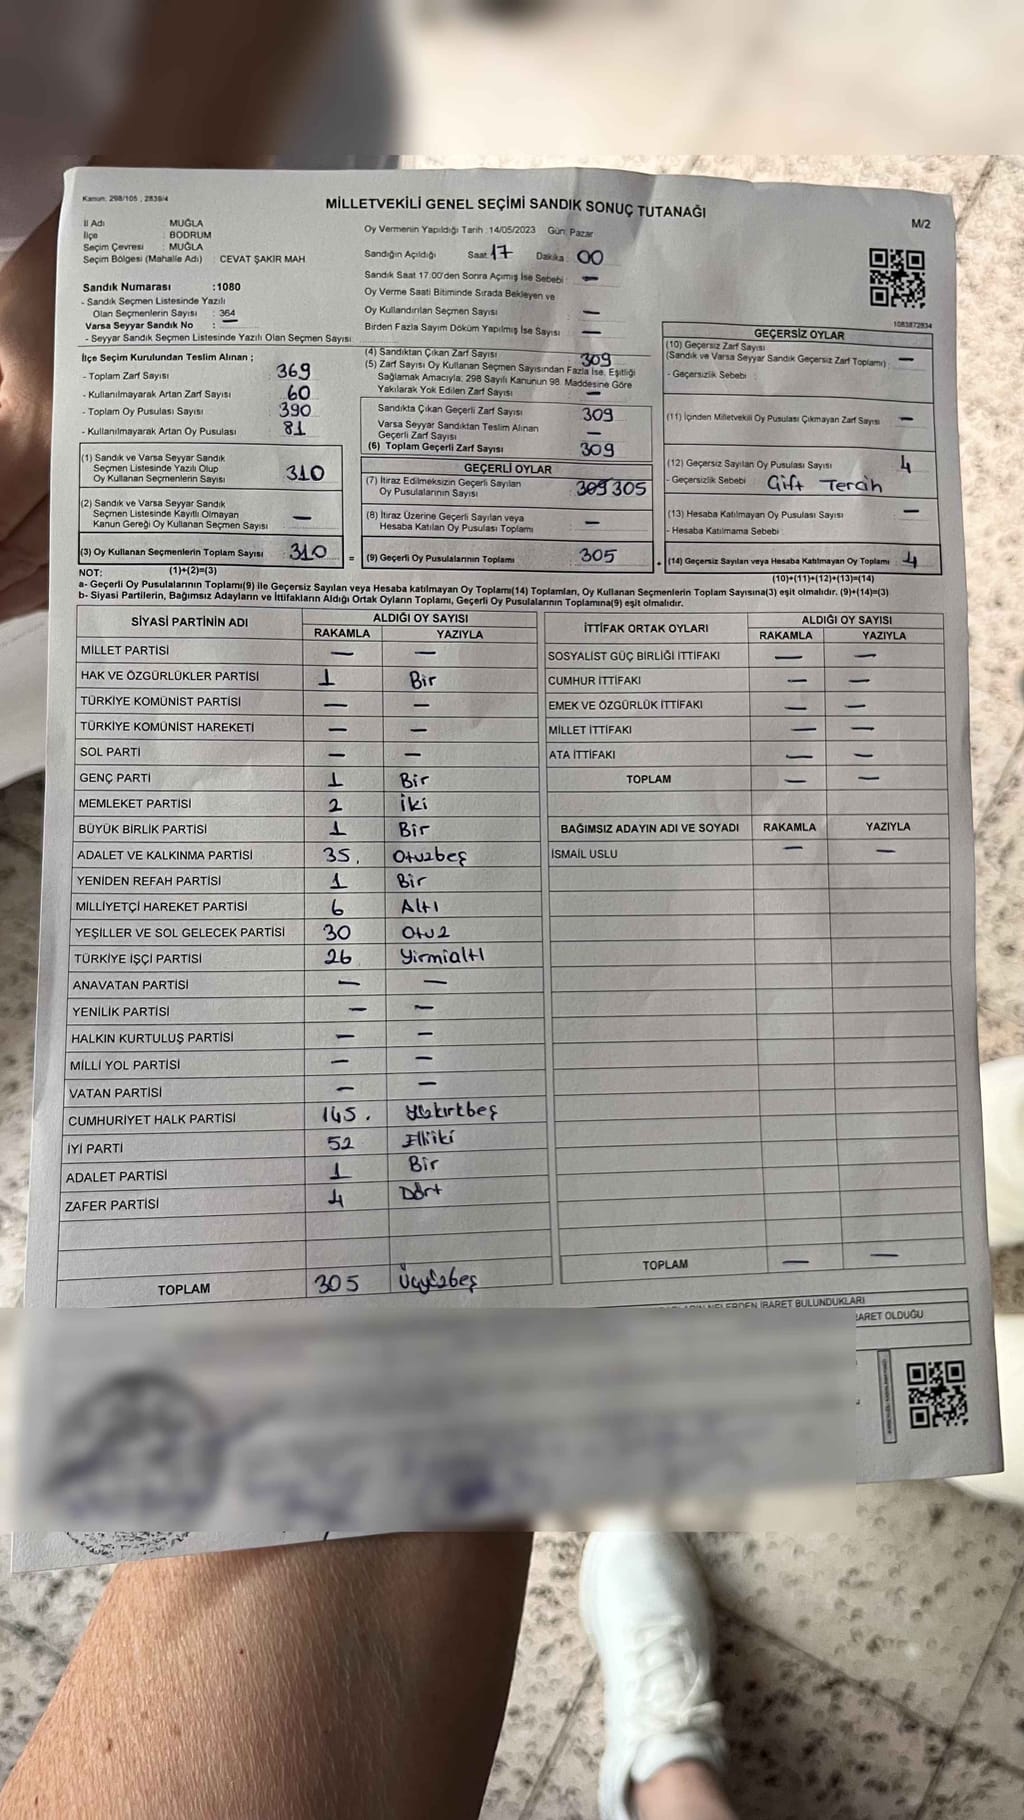 Kanun: 298/105 , 2839/4
MİLLETVEKİLİ GENEL SEÇİMİ SANDIK SONUÇ TUTANAĞI
M/2
İl Adı MUĞLA
İlçe : BODRUM
Seçim Çevresi : MUĞLA
Seçim Bölgesi (Mahalle Adı) : CEVAT ŞAKİR MAH
Sandık Numarası :1080
- Sandık Seçmen Listesinde Yazılı
Olan Seçmenlerin Sayısı : 364
Varsa Seyyar Sandık No : —
- Seyyar Sandık Seçmen Listesinde Yazılı Olan Seçmen Sayısı
Oy Vermenin Yapıldığı Tarih : 14/05/2023 Gün: Pazar
Sandığın Açıldığı Saat: 17 Dakika : 00
Sandık Saat 17:00'den Sonra Açımış İse Sebebi : —
Oy Verme Saati Bitiminde Sırada Bekleyen ve
Oy Kullandırılan Seçmen Sayısı —
Birden Fazla Sayım Döküm Yapılmış İse Sayısı —
1083872934
İlçe Seçim Kurulundan Teslim Alınan ;
- Toplam Zarf Sayısı : 369
- Kullanılmayarak Artan Zarf Sayısı : 60
- Toplam Oy Pusulası Sayısı : 390
- Kullanılmayarak Artan Oy Pusulası : 81
(1) Sandık ve Varsa Seyyar Sandık
Seçmen Listesinde Yazılı Olup
Oy Kullanan Seçmenlerin Sayısı : 310
(2) Sandık ve Varsa Seyyar Sandık
Seçmen Listesinde Kayıtlı Olmayan
Kanun Gereği Oy Kullanan Seçmen Sayısı : —
(3) Oy Kullanan Seçmenlerin Toplam Sayısı : 310 =
(4) Sandıktan Çıkan Zarf Sayısı : 309
(5) Zarf Sayısı Oy Kullanan Seçmen Sayısından Fazla İse, Eşitliği
Sağlamak Amacıyla, 298 Sayılı Kanunun 98. Maddesine Göre
Yakılarak Yok Edilen Zarf Sayısı : —
Sandıkta Çıkan Geçerli Zarf Sayısı : 309
Varsa Seyyar Sandıktan Teslim Alınan
Geçerli Zarf Sayısı : —
(6) Toplam Geçerli Zarf Sayısı : 309
GEÇERLİ OYLAR
(7) İtiraz Edilmeksizin Geçerli Sayılan
Oy Pusulalarının Sayısı : 309 305
(8) İtiraz Üzerine Geçerli Sayılan veya
Hesaba Katılan Oy Pusulası Toplamı : —
(9) Geçerli Oy Pusulalarının Toplamı : 305 +
GEÇERSİZ OYLAR
(10) Geçersiz Zarf Sayısı
(Sandık ve Varsa Seyyar Sandık Geçersiz Zarf Toplamı) : —
- Geçersizlik Sebebi :
(11) İçinden Milletvekili Oy Pusulası Çıkmayan Zarf Sayısı : —
(12) Geçersiz Sayılan Oy Pusulası Sayısı : 4
- Geçersizlik Sebebi : Çift Tercih
(13) Hesaba Katılmayan Oy Pusulası Sayısı : —
- Hesaba Katılmama Sebebi :
(14) Geçersiz Sayılan veya Hesaba Katılmayan Oy Toplamı : 4
NOT: (1)+(2)=(3) (10)+(11)+(12)+(13)=(14)
a- Geçerli Oy Pusulalarının Toplamı(9) ile Geçersiz Sayılan veya Hesaba katılmayan Oy Toplamı(14) Toplamları, Oy Kullanan Seçmenlerin Toplam Sayısına(3) eşit olmalıdır. (9)+(14)=(3)
b- Siyasi Partilerin, Bağımsız Adayların ve İttifakların Aldığı Ortak Oyların Toplamı, Geçerli Oy Pusulalarının Toplamına(9) eşit olmalıdır.
SİYASİ PARTİNİN ADI ALDIĞI OY SAYISI
RAKAMLA YAZIYLA
MİLLET PARTİSİ — —
HAK VE ÖZGÜRLÜKLER PARTİSİ 1 Bir
TÜRKİYE KOMÜNİST PARTİSİ — —
TÜRKİYE KOMÜNİST HAREKETİ — —
SOL PARTİ — —
GENÇ PARTİ 1 Bir
MEMLEKET PARTİSİ 2 iki
BÜYÜK BİRLİK PARTİSİ 1 Bir
ADALET VE KALKINMA PARTİSİ 35. Otuzbeş
YENİDEN REFAH PARTİSİ 1 Bir
MİLLİYETÇİ HAREKET PARTİSİ 6 Altı
YEŞİLLER VE SOL GELECEK PARTİSİ 30 Otuz
TÜRKİYE İŞÇİ PARTİSİ 26 Yirmialtı
ANAVATAN PARTİSİ — —
YENİLİK PARTİSİ — —
HALKIN KURTULUŞ PARTİSİ — —
MİLLİ YOL PARTİSİ — —
VATAN PARTİSİ — —
CUMHURİYET HALK PARTİSİ 145. Yüzkırkbeş
İYİ PARTİ 52 Elliiki
ADALET PARTİSİ 1 Bir
ZAFER PARTİSİ 4 Dört
TOPLAM 305 Üçyüzbeş
İTTİFAK ORTAK OYLARI ALDIĞI OY SAYISI
RAKAMLA YAZIYLA
SOSYALİST GÜÇ BİRLİĞİ İTTİFAKI — —
CUMHUR İTTİFAKI — —
EMEK VE ÖZGÜRLÜK İTTİFAKI — —
MİLLET İTTİFAKI — —
ATA İTTİFAKI — —
TOPLAM — —
BAĞIMSIZ ADAYIN ADI VE SOYADI RAKAMLA YAZIYLA
İSMAİL USLU — —
TOPLAM — —
NELERDEN İBARET BULUNDUKLARI
OLDUĞU